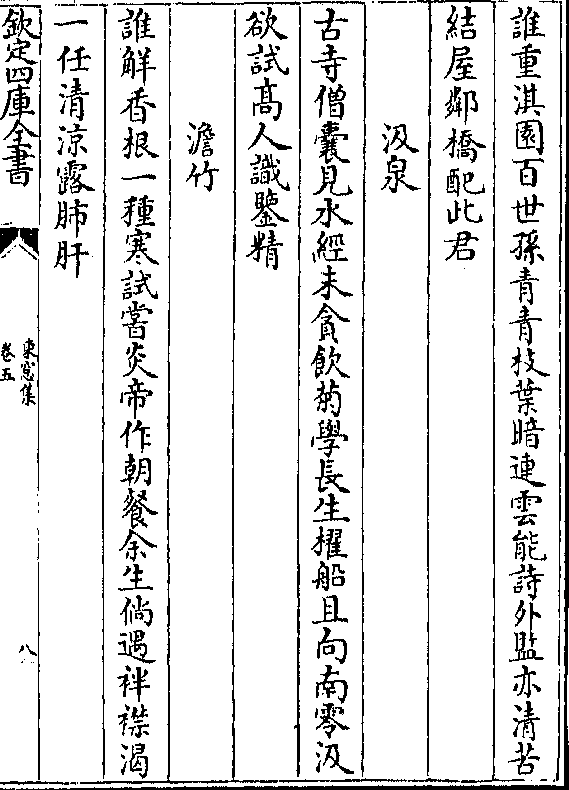 誰重淇園百世孫青青枝葉暗連雲能詩外監亦清苦
結屋鄰橋配此君
汲泉
古寺僧囊見水經未貪飲菊學長生擢船且向南零汲
欲試髙人識鑒精
澹竹
誰解香根一種寒試嘗炎帝作朝餐余生倘遇袢襟渴
一任清涼露肺肝
欽定四庫全書
東窓集
卷五
八